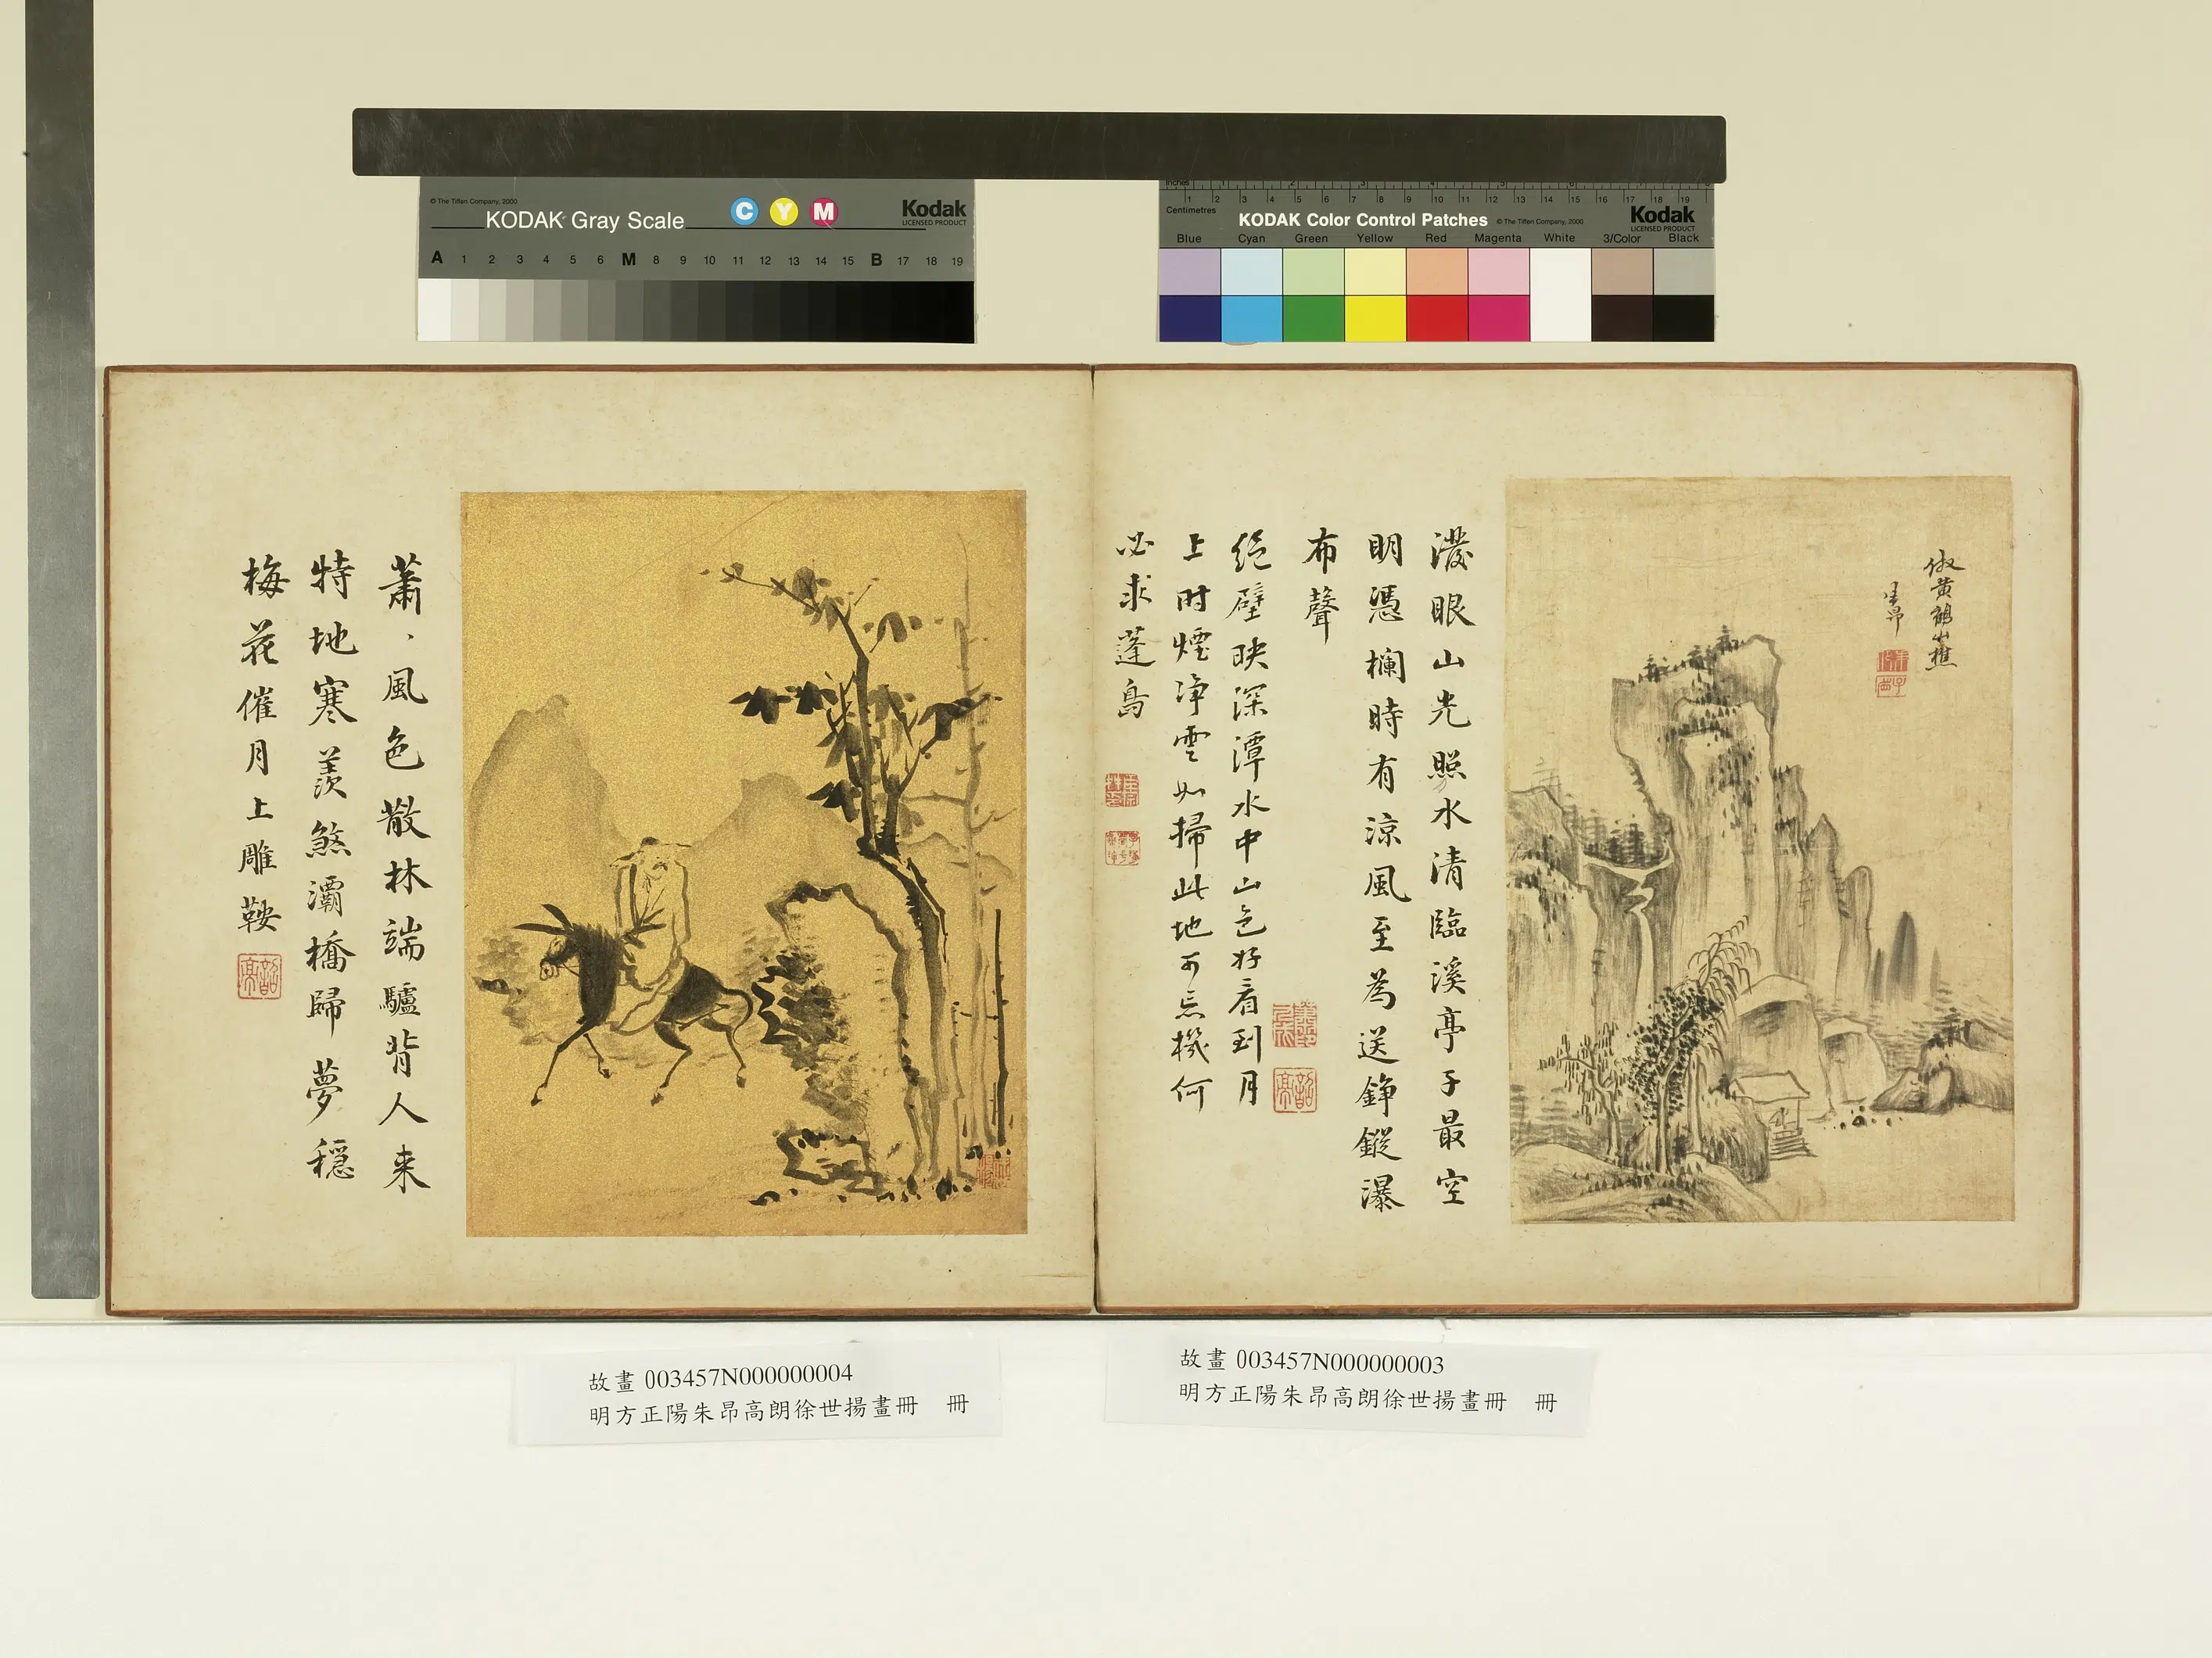 © The Tiffen Company, 2000
KODAK Gray Scale
C Y M
Kodak
LICENSED PRODUCT
A 1 2 3 4 5 6 M 8 9 10 11 12 13 14 15 B 17 18 19
Inches
Centimetres
1 2 3 4 5 6 7 8 9 10 11 12 13 14 15 16 17 18 19
KODAK Color Control Patches
© The Tiffen Company, 2000
Kodak
LICENSED PRODUCT
Blue Cyan Green Yellow Red Magenta White 3/Color Black
倣黃鶴山樵
朱昂
潑眼山光照水清臨溪亭子最空
明憑欄時有涼風至為送錚鏦瀑
布聲
絕壁映深潭水中山色好看到月
上時煙淨雲如掃此地可忘機何
必求蓬島
蕭〻風色散林端驢背人来
特地寒羨煞灞橋歸夢穩
梅花催月上雕鞍
故畫 003457N000000004
明方正陽朱昂高朗徐世揚畫冊 冊
故畫 003457N000000003
明方正陽朱昂高朗徐世揚畫冊 冊